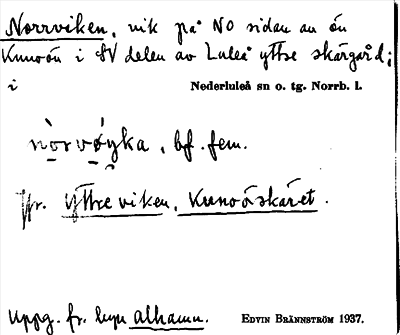 Norrviken, vik på NO sidan av ön
Kunoön i SV delen av Luleå yttre skärgård;
i Nederluleå sn o. tg. Norrb. l.
nòrvø̀yka, bf. fem.
jfr. yttre viken, Kunoöskäret.
Uppg. fr. byn Alhamn. EDVIN BRÄNNSTRÖM 1937.